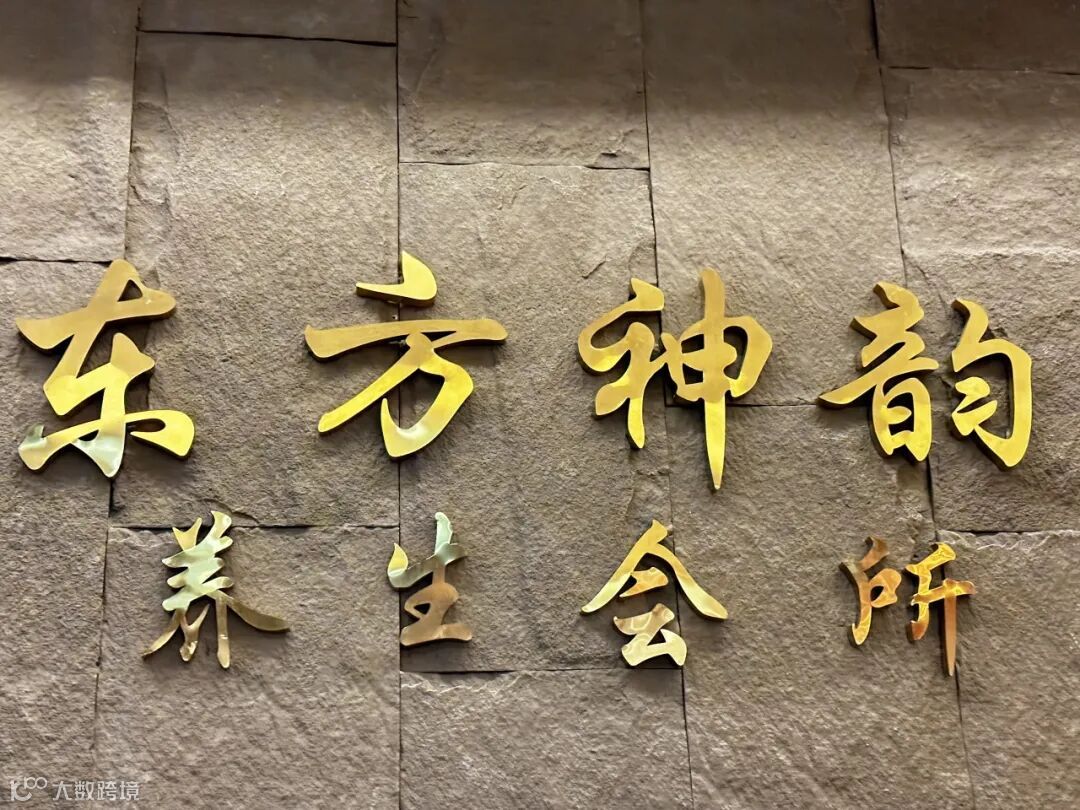 东方神韵
养生会所
大数跨境